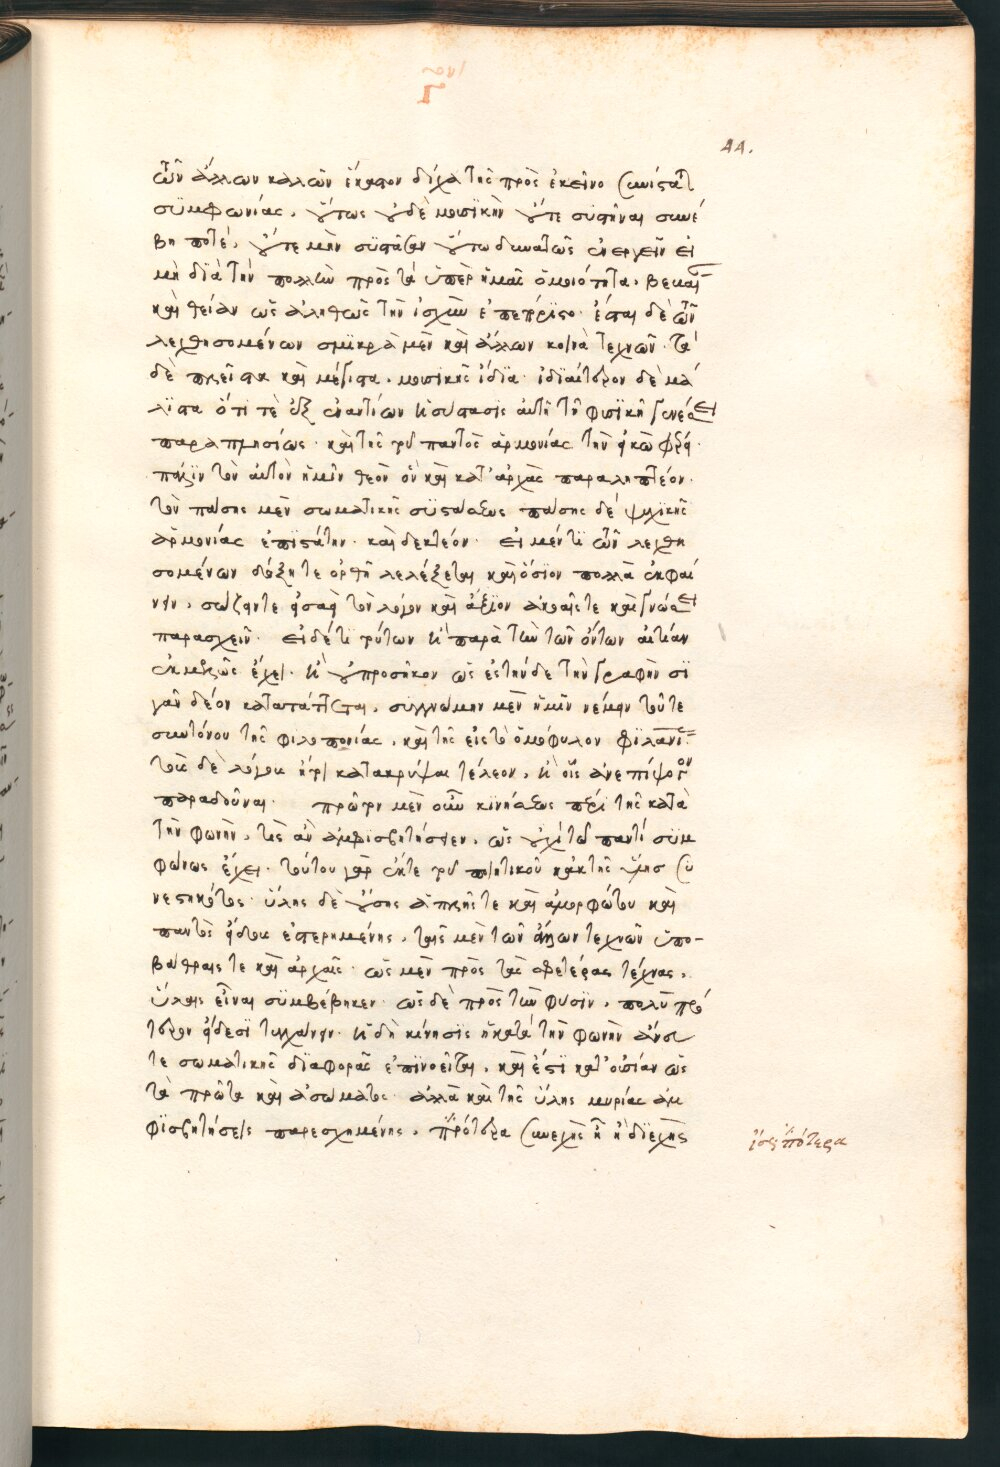 τῶν ἄλλων καλῶν ἕκαστον δίχα τῆς πρὸς ἐκεῖνο συνίσταται
συμφωνίας. οὕτως οὐδὲ μουσικὴν οὔτε συστῆναι συνέ
βη ποτέ, οὔτε μὴν συστᾶσαν οὕτω δυνατῶς ἐνεργεῖν εἰ
μὴ διὰ τὴν πολλὴν πρὸς τὰ ὑπὲρ ἡμᾶς ὁμοιότητα.
καὶ θείαν ὡς ἀληθῶς τὴν ἰσχὺν ἐπεπόριστο· ἔσται δὲ τῶν
λεχθησομένων σμικρὰ μὲν καὶ ἄλλων κοινὰ τεχνῶν· τὰ
δὲ πλεῖστα καὶ μέγιστα, μουσικῆς ἴδια· ἰδιαίτερον δὲ μά
λιστα ὅτι τὲ ἐξ ἐναντίων ἡ σύστασις αὐτῇ τῇ φυσικῇ γενέσει
παραπλησίως· καὶ τῆς τοῦ παντὸς ἁρμονίας τὴν εἰκόνα φέρει·
πάλιν τὸν αὐτὸν ἡμῖν θεὸν ὃν καὶ κατ' ἀρχὰς παραληπτέον·
τὸν πάσης μὲν σωματικῆς συστάσεως πάσης δὲ ψυχικῆς
ἁρμονίας ἐπιστάτην· καὶ δεκτέον· εἰ μέν τι τῶν λεχθη
σομένων δόξῃ τε ὀρθῇ λελέξεται καὶ ὅσιον πολλὰ ἐκφαί
νειν, σώζοντε εἰσαεὶ τὸν λόγον καὶ ἄξιον ἀκοαῖς τε καὶ γνώσει
παρασχεῖν· εἰ δέ τι τούτων ἢ παρὰ τὴν τῶν ὄντων αἰτίαν
ἐκμελῶς ἔχει· ἢ οὐ προσῆκον ὡς ἐς τήνδε τὴν γραφὴν σι
γᾶν δέον κατατάττεται, συγγνώμην μὲν ἡμῖν νέμειν τοῦτε
συντόνου τῆς φιλοπονίας, καὶ τῆς εἰς τὸ ὁμόφυλον φιλανθρωπίας
τοὺς δὲ λόγους ἤτοι κατακρύψαι τέλεον, ἢ οἷς ἀνεπίψογον
παραδοῦναι· πρῶτον μὲν οὖν κινήσεως πέρι τῆς κατὰ
τὴν φωνὴν, τίς ἂν ἀμφισβητήσειεν, ὡς οὐχὶ τῷ παντὶ συμ
φώνως ἔχει· τούτου γὰρ ἔκ τε τοῦ ποιητικοῦ κἀκ τῆς ὕλης συ
νεστηκότος· ὕλης δὲ οὔσης ἁπλῆς τε καὶ ἀμορφώτου καὶ
παντὸς εἴδους ἐστερημένης, ταῖς μὲν τῶν ἄλλων τεχνῶν ὑπο-
βάθραις τε καὶ ἀρχαῖς· ὡς μὲν πρὸς τὰς σφετέρας τέχνας,
ὕλαις εἶναι συμβέβηκεν· ὡς δὲ πρὸς τὴν φύσιν, πολὺ πρό
τερον εἴδεσι τυγχάνειν· ἡ δὴ κίνησις ἡ κατὰ τὴν φωνὴν ἄνευ
τε σωματικῆς διαφορᾶς ἐπινοεῖται, καὶ ἔστι κατ' οὐσίαν ὡς
τὰ πρῶτα καὶ ἀσώματος· ἀλλὰ καὶ τῆς ὕλης μυρίας ἀμ
φισβητήσεις παρεσχημένης, πρότερα συνεχὴς ἢ ἢ διεχὴς
ἴσως πότερα